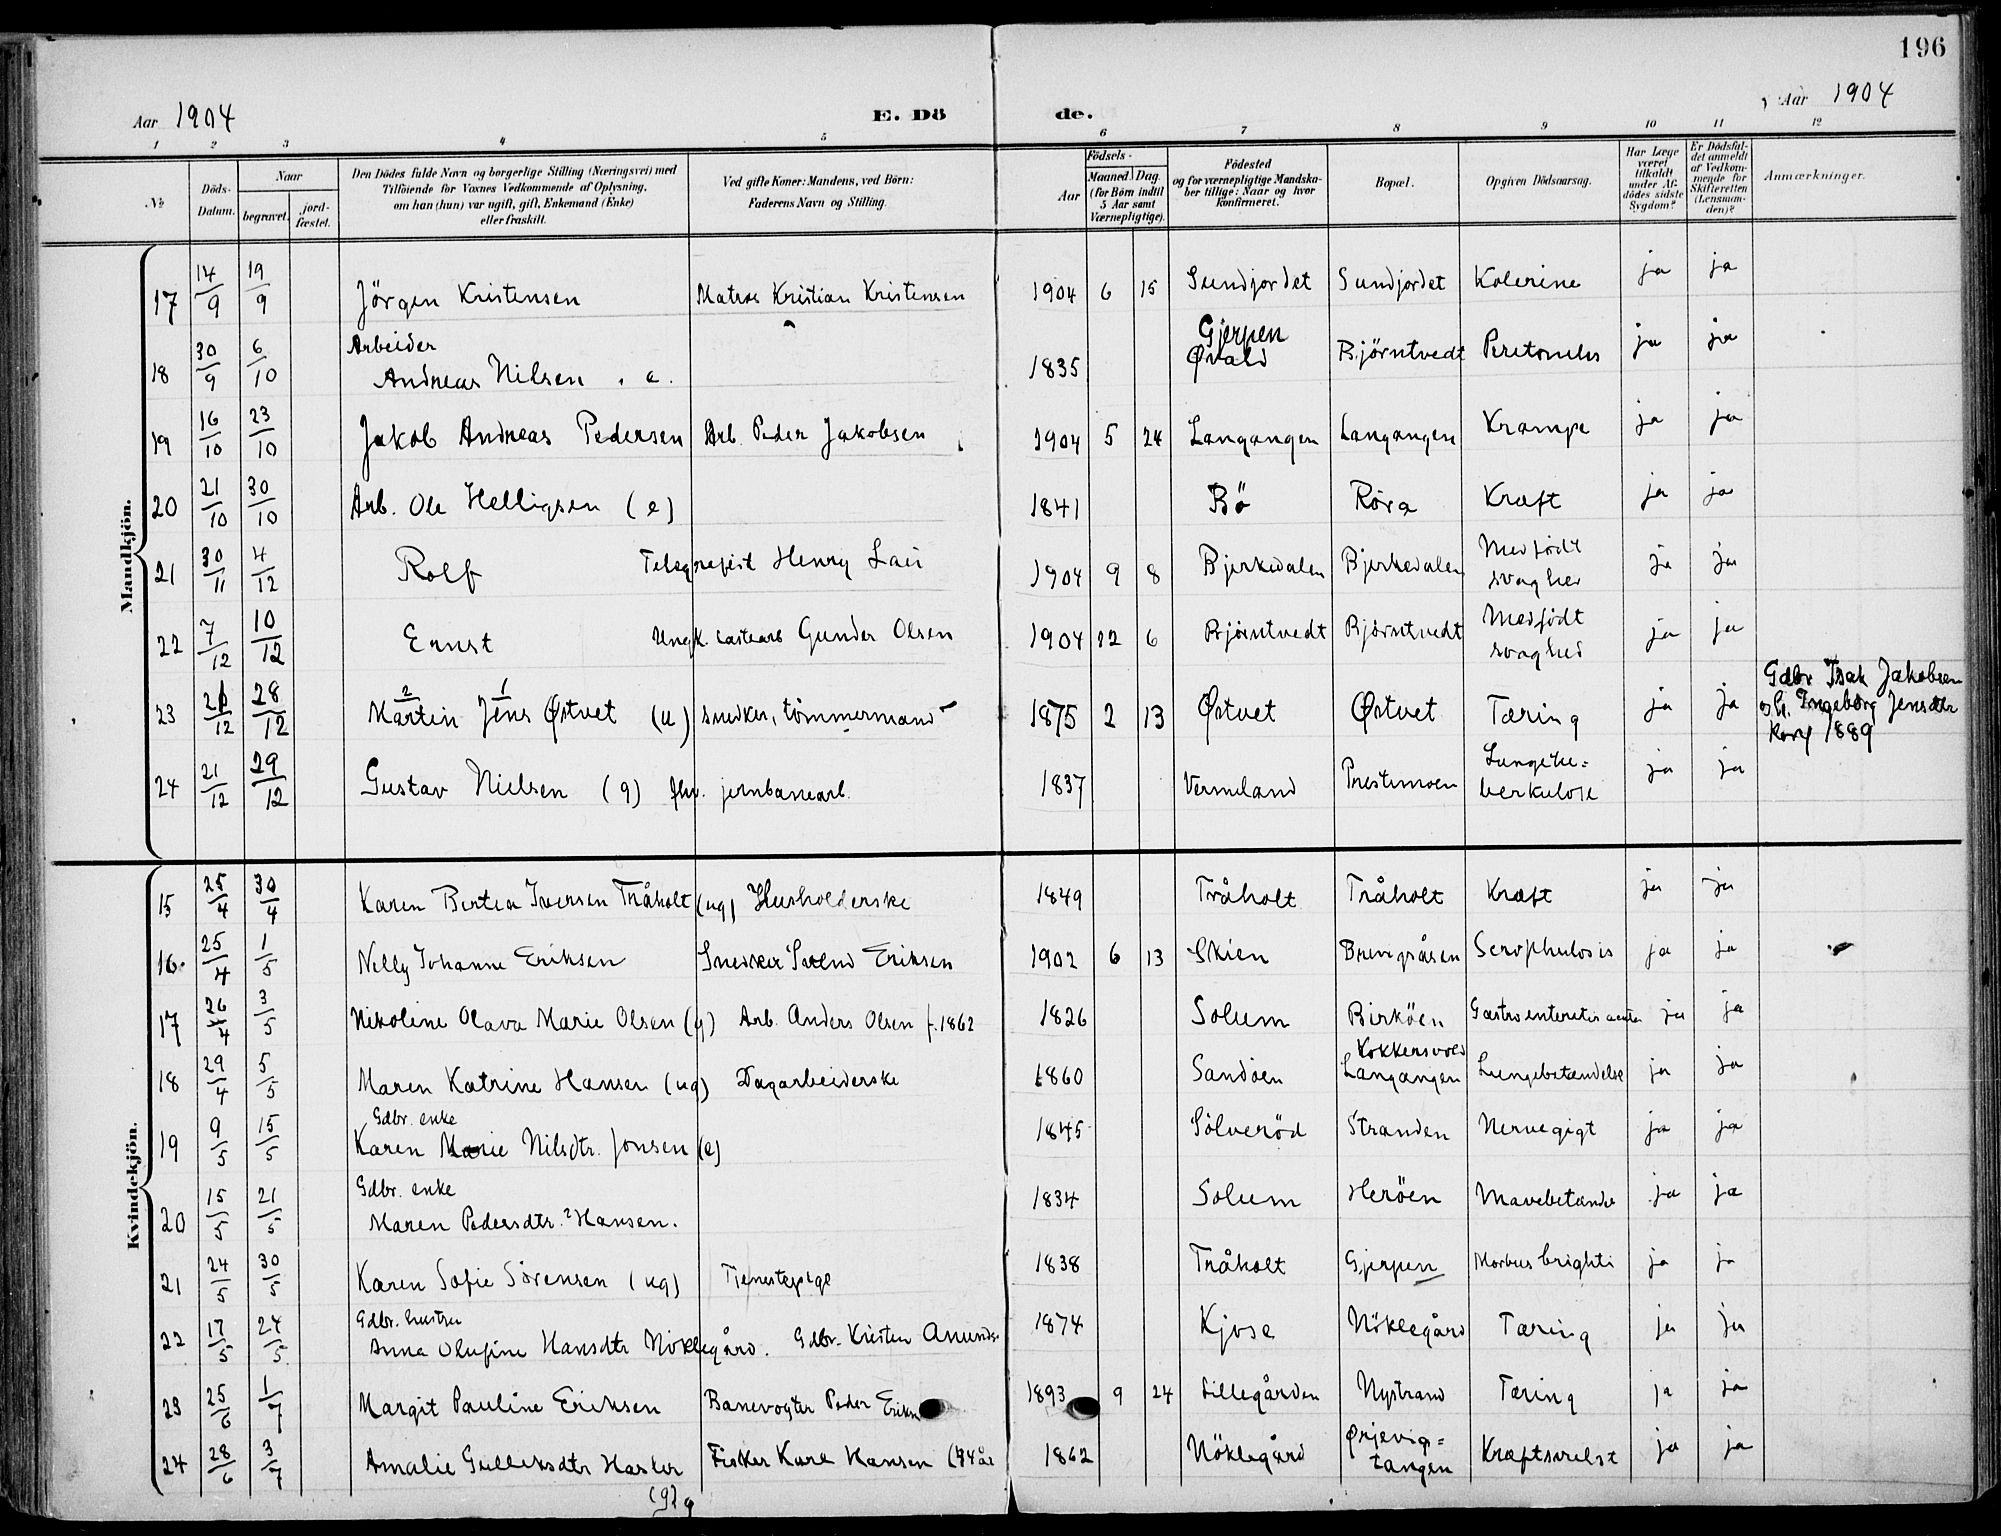 196
Aar 1904
E. Dö
de.
Aar 1904
1 2 3 4 5 6 7 8 9 10 11 12
№
Döds-
Datum.
Naar
begravet.
jord-
fæstet.
Den Dödes fulde Navn og borgerlige Stilling (Næringsvei) med
Tilföiende for Voxnes Vedkommende af Oplysning,
om han (hun) var ugift, gift, Enkemand (Enke)
eller fraskilt.
Ved gifte Koner: Mandens, ved Börn:
Faderens Navn og Stilling.
Födsels-
Aar
Maaned. Dag.
(for Börn indtil
5 Aar samt
Værnepligtige).
Födested
og for værnepligtige Mandska-
ber tillige: Naar og hvor
Konfirmeret.
Bopæl.
Opgiven Dödsaarsag.
Har Læge
været
tilkaldt
under Af-
dödes sidste
Sygdom?
Er Dödsfal-
det anmeldt
af Vedkom-
mende for
Skifteretten
(Lensman-
den)?
Anmærkninger.
Mandkjön.
17 14/9 19/9 Jörgen Kristensen Matros Kristian Kristensen 1904 6 15 Sundjordet Sundjordet Kolerine ja ja
18 30/9 6/10 Arbeider
Andreas Nilsen . e. 1835 Gjerpen
Øvald Björntvedt ja ja
19 16/10 23/10 Jakob Andreas Pedersen Arb. Peder Jakobsen 1904 5 24 Langangen Langangen Krampe ja ja
20 21/10 30/10 Arb. Ole Helligsen (e) 1841 Bö Röra Kræft ja ja
21 30/11 4/12 Rolf Telegrafist Henry Lai 1904 9 8 Bjerkedalen Bjerkedalen Medfödt
svaghed ja ja
22 7/12 10/12 Ernst Ungk. Gunder Olsen 1904 12 6 Björntvedt Björntvedt Medfödt
svaghed ja ja
23 21/12 28/12 2 1
Martin Jens Østvet (u) snedker, tömmermand 1875 2 13 Østvet Østvet Tæring ja ja Gdbr Isak Jakobsen
og h. Ingeborg Jensdtr
Konf 1889
24 21/12 29/12 Gustav Nielsen (g) fhv. jernbanearb. 1837 Vermeland Prestemoen Lungetu=
berkulose ja ja
Kvindekjön.
15 25/4 30/4 Karen Bertea Iversen Tråholt (ug) Husholderske 1849 Tråholt Tråholt Kræft ja ja
16. 25/4 1/5 Nelly Johanne Eriksen Snedker Eriksen 1902 6 13 Skien Brevigsåsen Scrophulosis ja ja
17 26/4 3/5 Nikoline Olava Marie Olsen (g) Arb. Anders Olsen f. 1862 1826 Solum Birköen Gastroenteritis acuta ja ja
18 29/4 5/5 Maren Katrine Hansen (ug) Dagarbeiderske 1860 Sandöen Kokkersvold
Langangen Lungebetændelse ja ja
19 9/5 15/5 Gdbr. enke
Karen Marie Nilsdtr. Jonsen (e) 1845 Sölveröd Stranden Nervegigt ja ja
20 15/5 21/5 Gdbr. enke
Maren Pedersdtr. ? Hansen. 1834 Solum Heröen Mavebetænde ja ja
21 24/5 30/5 Karen Sofie Sörensen (ug) Tjenestepige 1838 Tråholt Gjerpen Morbus brighti ja ja
22 17/5 24/5 Gdbr. hustru
Anna Olufine Hansdtr Nöklegård. Gdbr. Kristen Amunds 1874 Kjose Nöklegård Tæring ja ja
23 25/6 1/7 Margit Pauline Eriksen Banevogter Peder Eriksen 1893 9 24 Lillegården Nystrand Tæring ja ja
24 28/6 3/7 Amalie Gulleksdtr Fisker Karl Hansen (44 år 1862 Nöklegård Ørjevig=
tangen Kræftsvulst ja ja
(g)